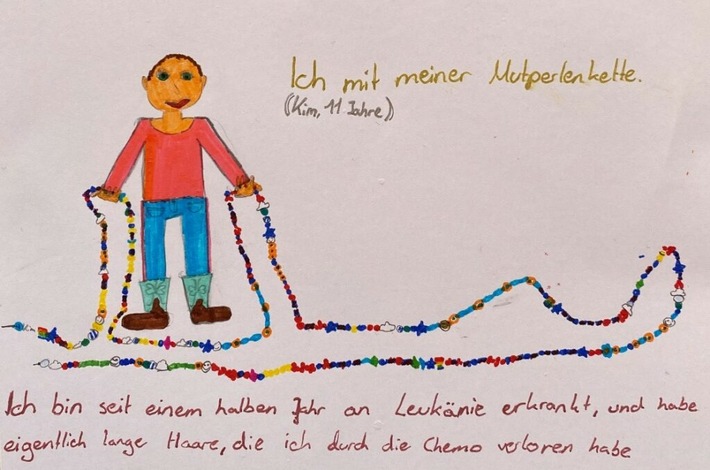 Ich mit meiner Mutperlenkette.
(Kim, 11 Jahre)
Ich bin seit einem halben Jahr an Leukänie erkrankt, und habe
eigentlich lange Haare, die ich durch die Chemo verloren habe